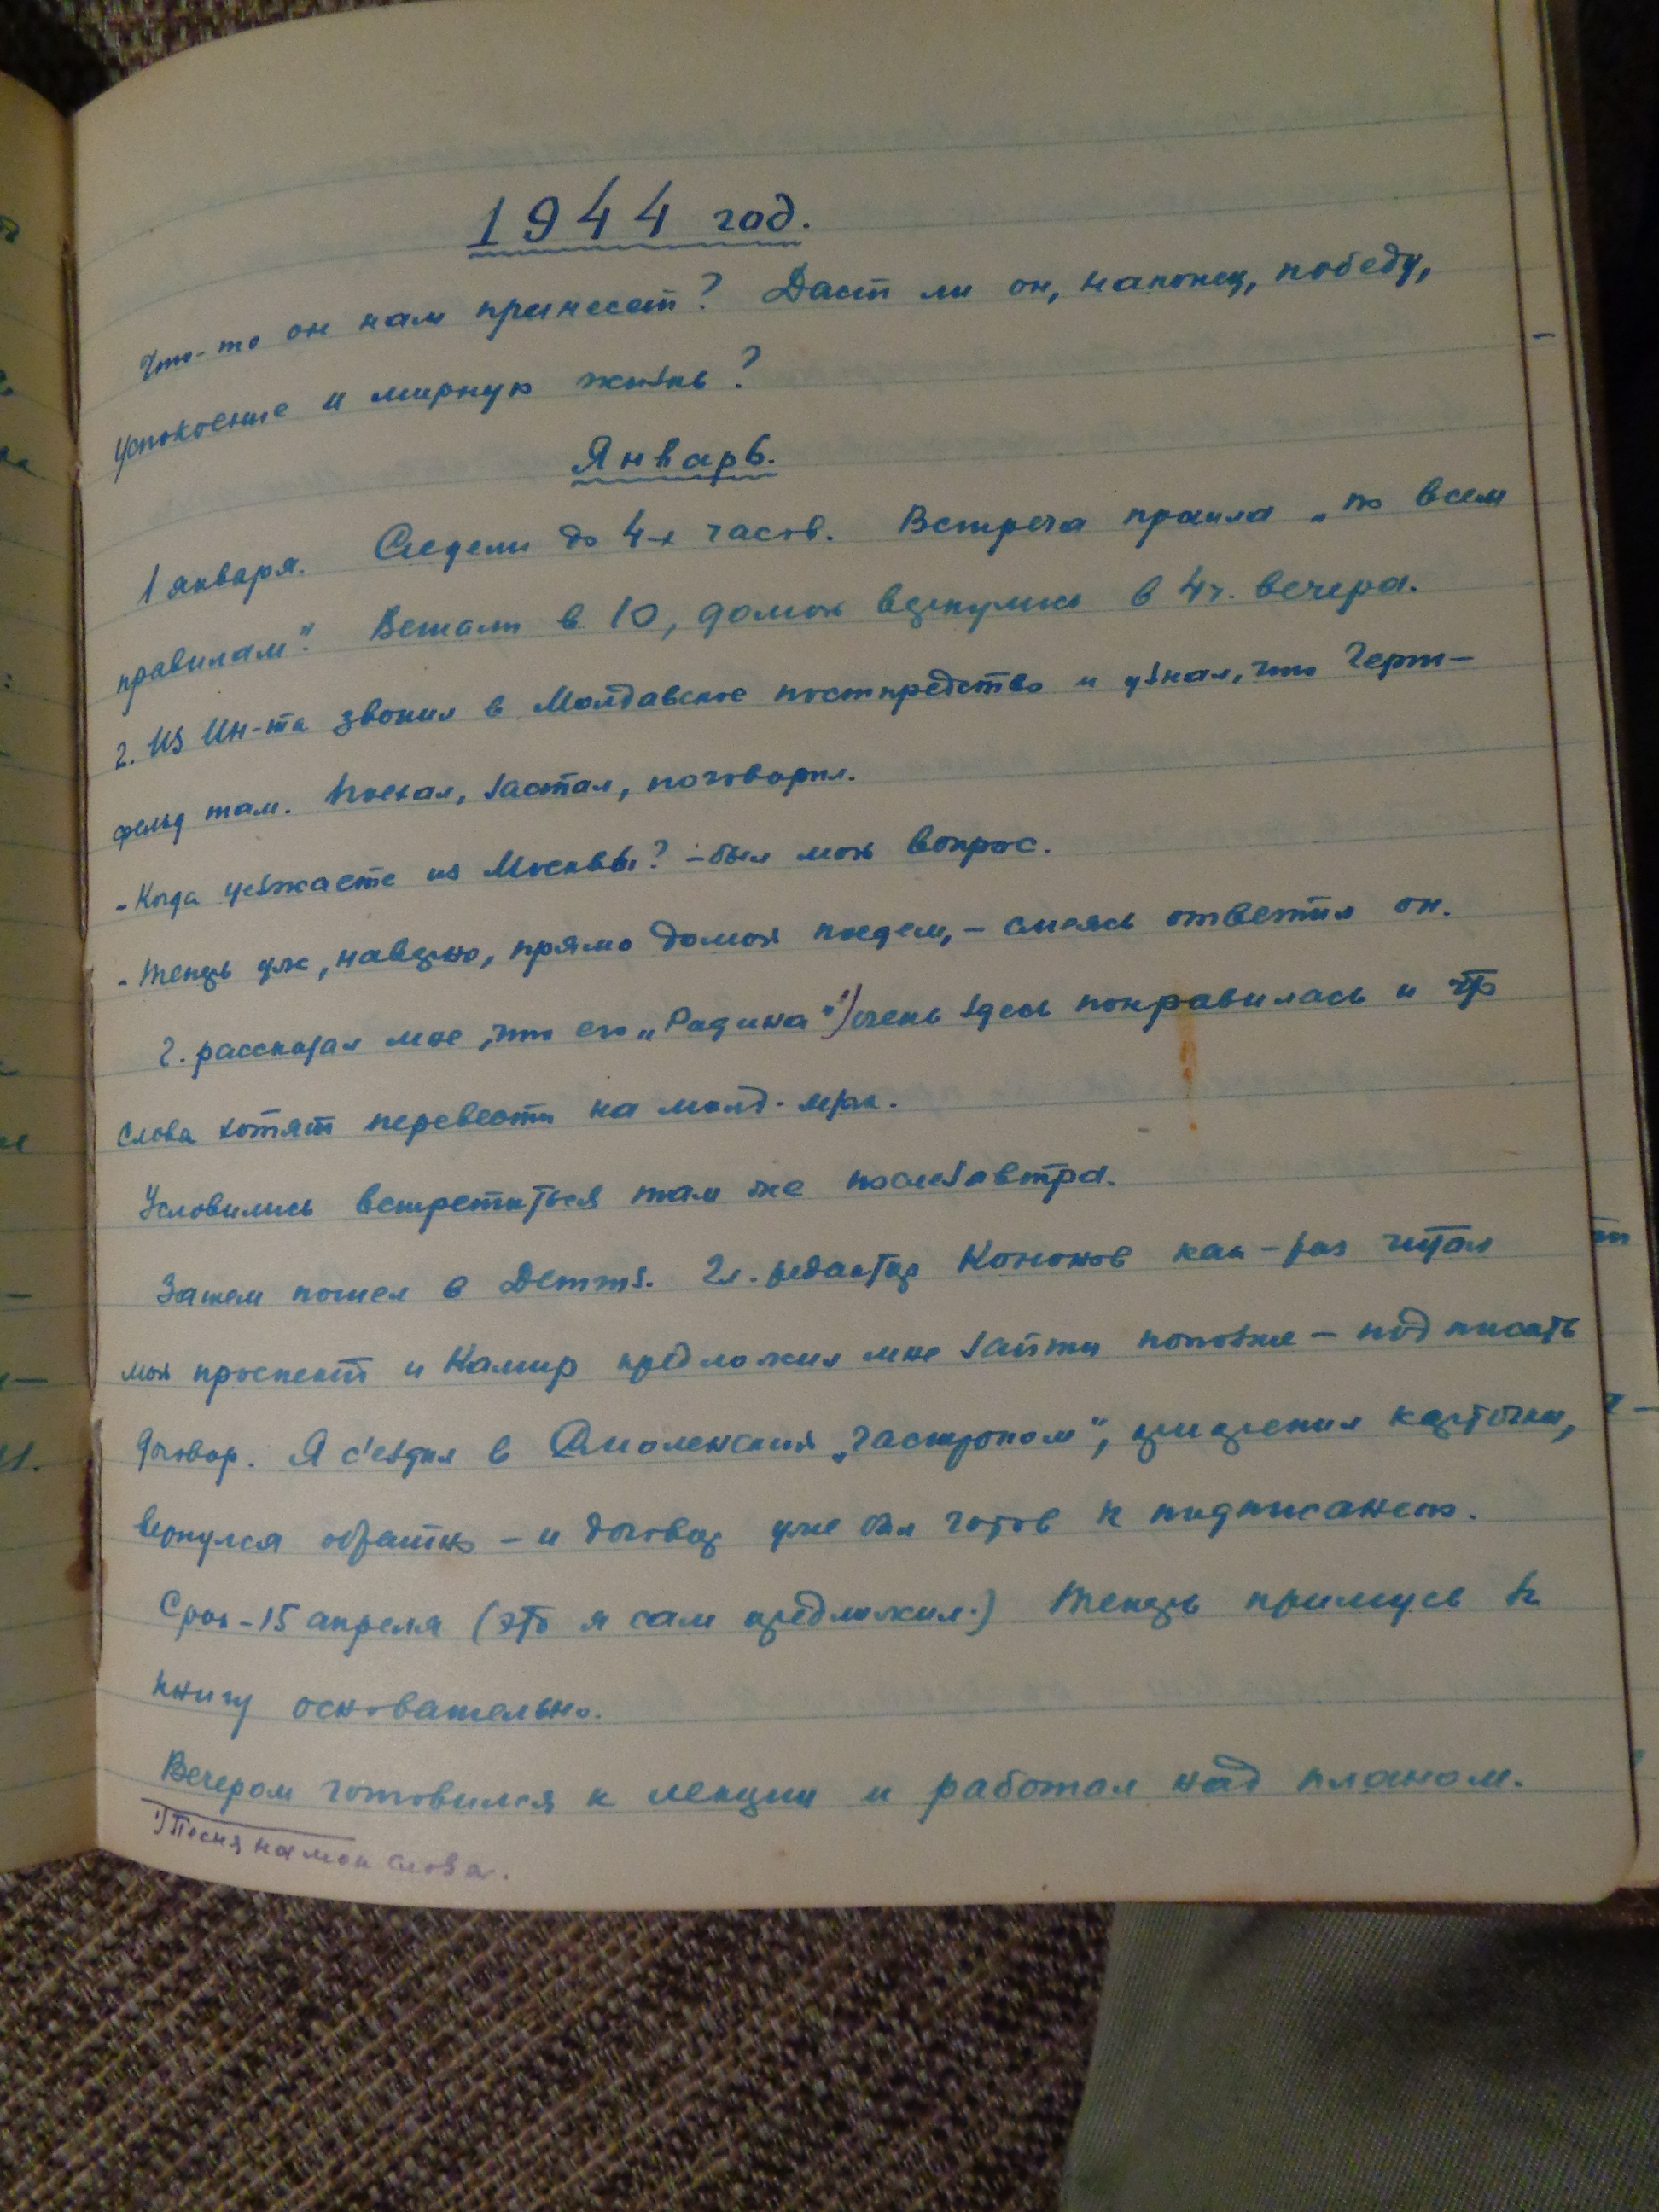 1944 год.
Что-то он нам принесет? Даст ли он, наконец, победу,
успокоение и мирную жизнь?
Январь.
1 января. Сидели до 4-х часов. Встреча прошла „по всем
правилам". Встали в 10, домой вернулись в 4 ч. вечера.
2. Из Ин-та звонил в Молдавское постпредство и узнал, что Герш-
фельд там. Поехал, застал, поговорил.
- Когда уезжаете из Москвы? - был мой вопрос.
- Теперь уж, наверно, прямо домой поедем, - смеясь ответил он.
Г. рассказал мне, что его „Родина" ¹) очень здесь понравилась и что
слова хотят перевести на молд. язык.
Условились встретиться там же послезавтра.
Затем пошел в Детгиз. Гл. редактор Кононов как-раз читал
мой проспект и Камир предложил мне зайти попозже - подписать
договор. Я съездил в Смоленский „Гастроном", прикрепил карточки,
вернулся обратно - и договор уже был готов к подписанию.
Срок - 15 апреля (это я сам предложил.) Теперь примусь за
книгу основательно.
Вечером готовился к лекции и работал над планом.
¹) Песня на мои слова.